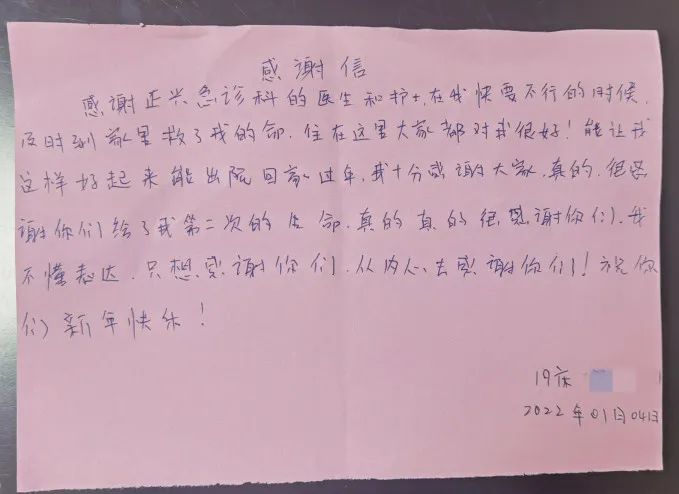 感谢信
感谢正兴急诊科的医生和护士,在我快要不行的时候,
及时到家里救了我的命.住在这里大家都对我很好!能让我
这样好起来能出院回家过年,我十分感谢大家,真的.很感
谢你们给了我第二次的生命.真的真的很感谢你们.我
不懂表达.只想感谢你们.从内心去感谢你们!祝你
们新年快乐!
19床
2022年01月04日